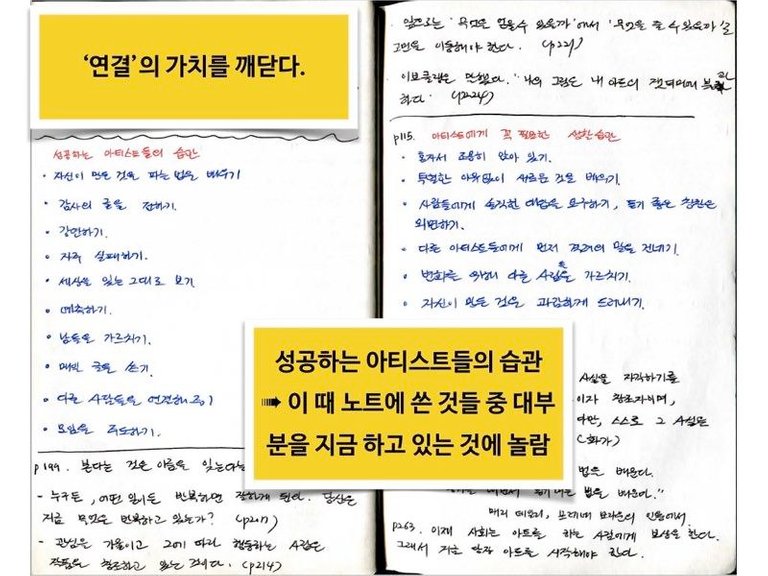 '연결'의 가치를 깨닫다.
성공하는 아티스트들의 습관
• 자신이 만든 것을 파는 법을 배우기
• 감사의 글을 전하기.
• 강연하기.
• 자주 실패하기.
• 세상을 있는 그대로 보기.
• 예측하기.
• 남들을 가르치기.
• 매일 글을 쓰기.
• 다른 사람들을 연결해주기
• 모임을 주도하기.
p199. 본다는 것은 이름을 잊는다는
- 누구든, 어떤 일이든 반복하면 잘하게 된다. 당신은
지금 무엇을 반복하고 있는가? (p217)
- 관심을 기울이고 그에 따라 행동하는 사람은
작품을 창조하고 있는 것이다. (p214)
앞으로는 '무엇을 얻을 수 있을까'에서 '무엇을 줄 수 있을까'로
고민을 이동해야 한다. (p221)
이브 클랭은 말했다. "나의 그림은 내 아트의 잿더미에 불과
하다." (p224)
p115. 아티스트에게 꼭 필요한 성찰 습관
• 혼자서 조용히 앉아 있기.
• 특별한 이유없이 새로운 것을 배우기.
• 사람들에게 솔직한 대답을 요구하기, 듣기 좋은 칭찬은
외면하기.
• 다른 아티스트들에게 먼저 격려의 말을 건네기.
• 변화를 위해 다른 사람을 가르치기.
• 자신이 만든 것을 과감하게 드러내기.
성공하는 아티스트들의 습관
➠ 이 때 노트에 쓴 것들 중 대부
분을 지금 하고 있는 것에 놀람
사실을 자각하기를
이자 창조자이며,
다만, 스스로 그 사실을
(화가)
법을 배운다.
법을 배운다."
p263. 이제 사회는 아트를 하는 사람에게 보상을 한다.
그래서 지금 당장 아트를 시작해야 한다.